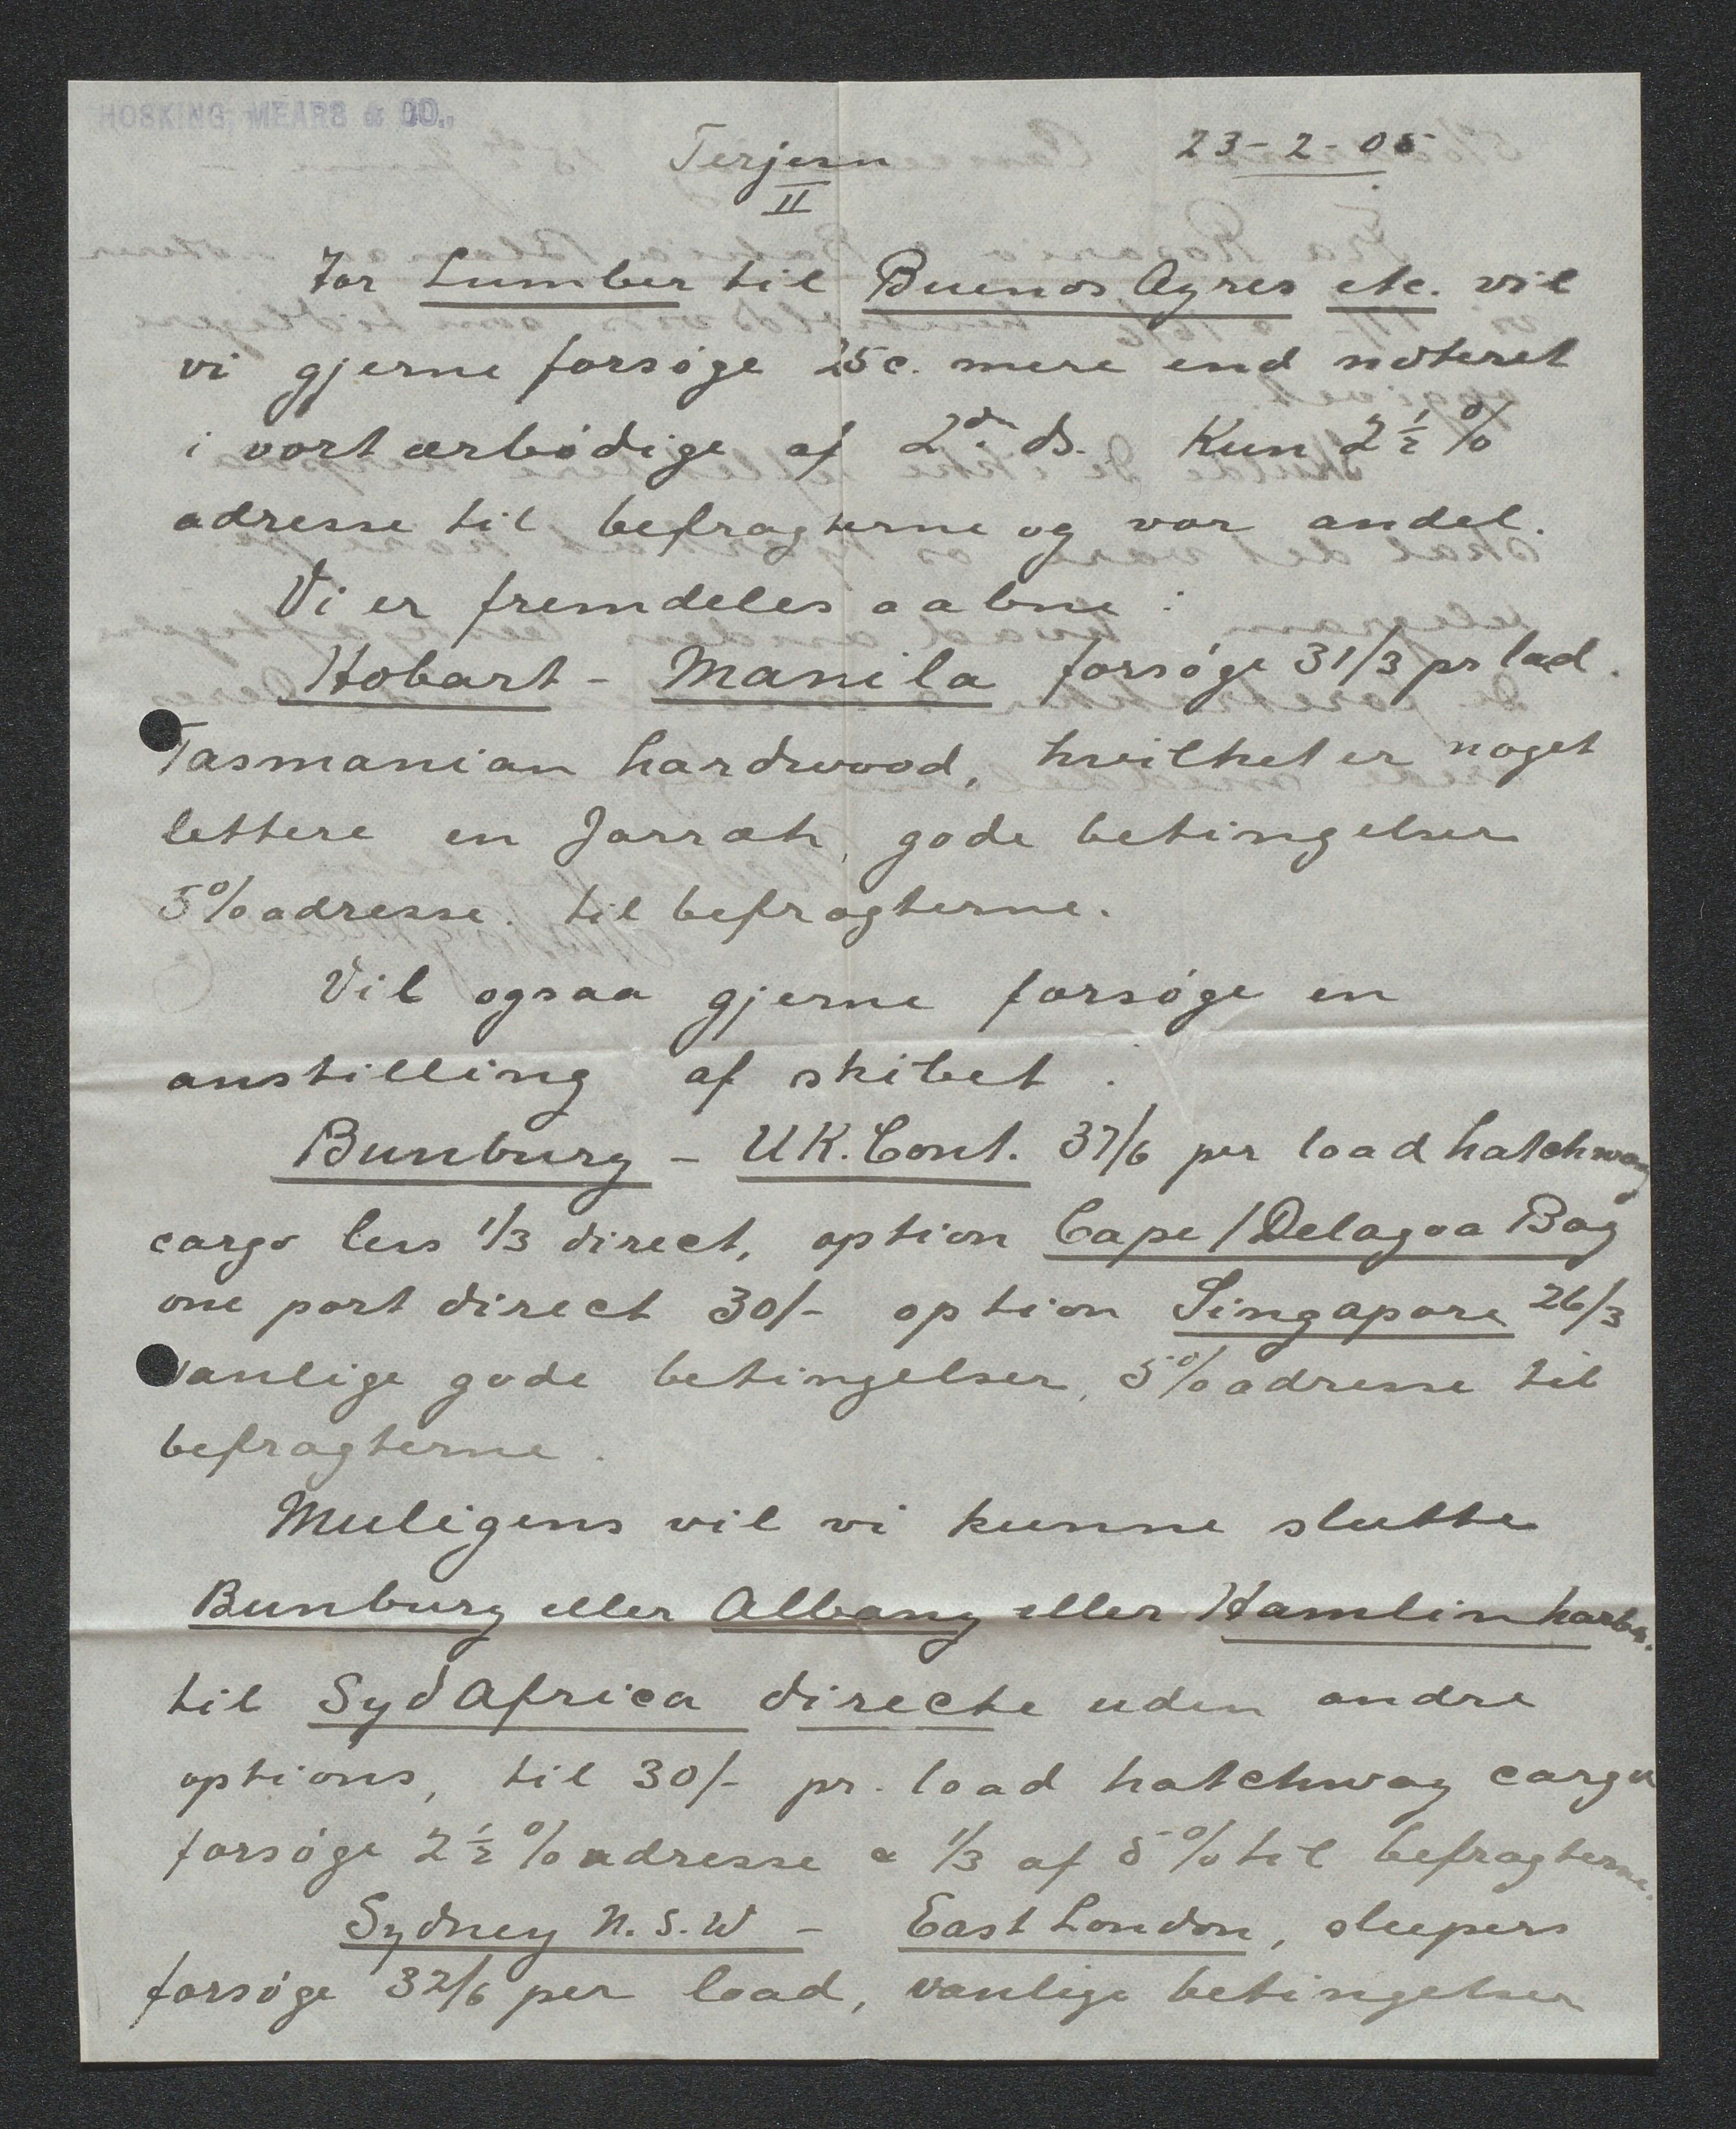 HOSKING, MEARS & CO.,
Terjesen 23-2-05
II
For Lumber til Buenos Ayres etc. vil
vi gjerne forsøge 25c. mere end noteret
i vort ærbødige af 2den ds. Kun 2½ %
adresse til befragterne og vor andel.
Vi er fremdeles aabne :
Hobart - Manila forsøge 31/3 pr lad.
Tasmanian hardwood, hvilket er noget
lettere en Jarrah, gode betingelser
5% adresse. til befragterne.
Vil ogsaa gjerne forsøge en
anstilling af skibet.
Bunbury - UK. Cont. 37/6 per load hatchway
cargo less 1/3 direct, option Cape / Delagoa Bay
one port direct 30/- option Singapore 26/3
vanlige gode betingelser, 5% adresse til
befragterne.
Muligens vil vi kunne slutte
Bunbury eller Albany eller Hamlin harbr.
til Syd Africa directe uden andre
options, til 30/- pr. load hatchway cargo
forsøge 2½ % adresse a 1/3 af 5% til befragterne.
Sydney N.S.W - East London, sleepers
forsøge 32/6 per load, vanlige betingelser